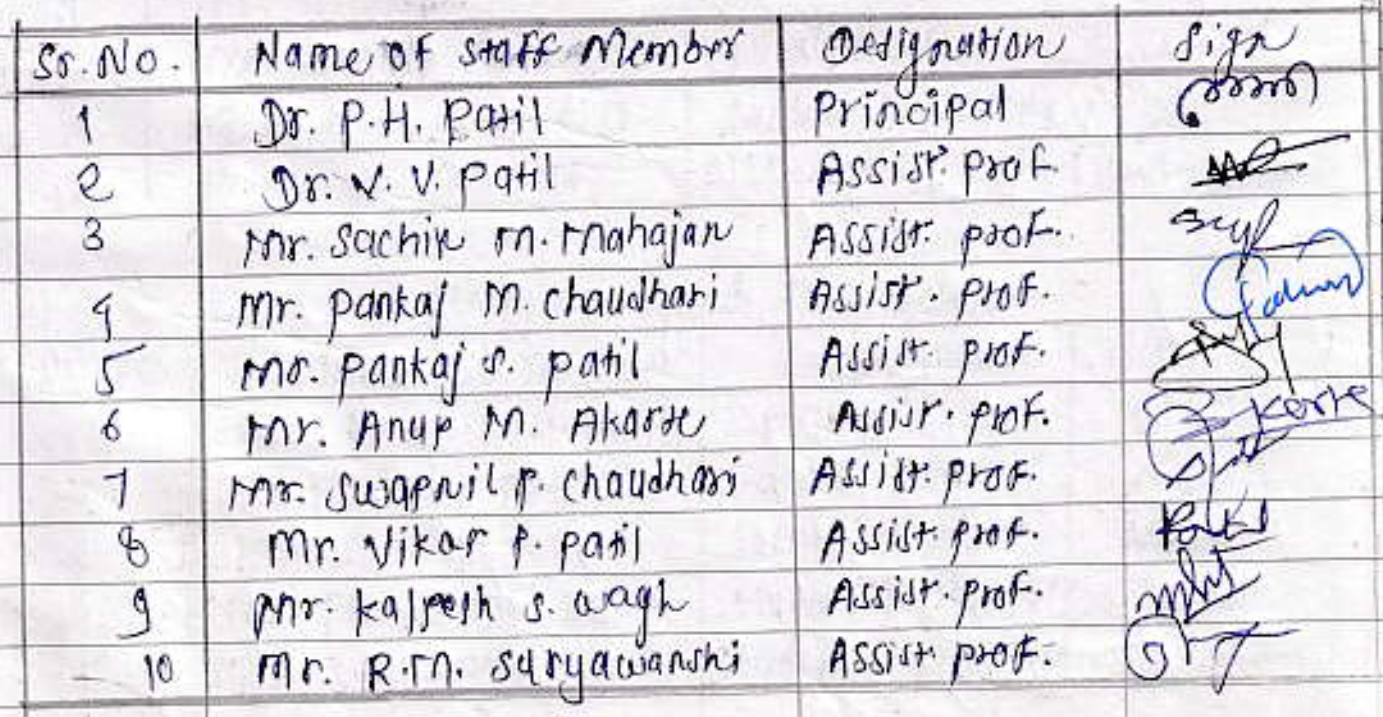 Sr. No. Name of staff Member Designation Sign
1 Dr. P.H. Patil Principal
2 Dr. V. V. Patil Assist. prof.
3 Mr. Sachin M. Mahajan Assist. prof.
4 Mr. Pankaj M. Chaudhari Assist. prof.
5 Mr. Pankaj S. Patil Assist. prof.
6 Mr. Anup M. Akarte Assist. prof.
7 Mr. Swapnil P. Chaudhari Assist. prof.
8 Mr. Vikas P. Patil Assist. prof.
9 Mr. Kalpesh S. Wagh Assist. prof.
10 Mr. R.M. Suryawanshi Assist. prof.